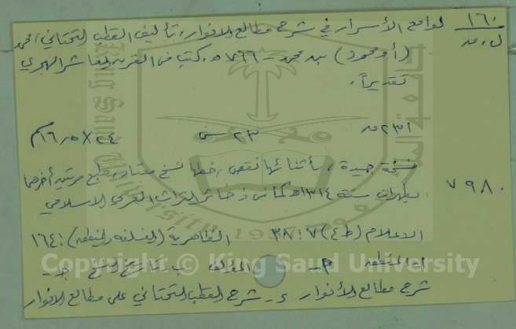 ١٦٠ لوامع الأسرار في شرح مطالع الانوار، تأليف القطب التحتاني، محمد
ل.م (أو محمود) بن محمد - ٧٦٦ هـ. كتب في القرن العاشر الهجري
تقديراً.
٢٣١ ق ٢٣ س ٢٤×١٦٫٥ سم
نسخة جيدة، بأثنائها نقص، خطها نسخ معتاد، طبع مرتين آخرهما
٧٩٨٠ بطهران سنة ١٣١٤هـ كما في ذخائر التراث العربي الاسلامي
الاعلام (ط٤) ٧: ٣٨ الظاهرية (الفلسفة والمنطق): ١٦٤
١- المنطق أ- المؤلف ب- تاريخ النسخ ج-
شرح مطالع الأنوار د- شرح القطب التحتاني على مطالع الانوار
Copyright © King Saud University